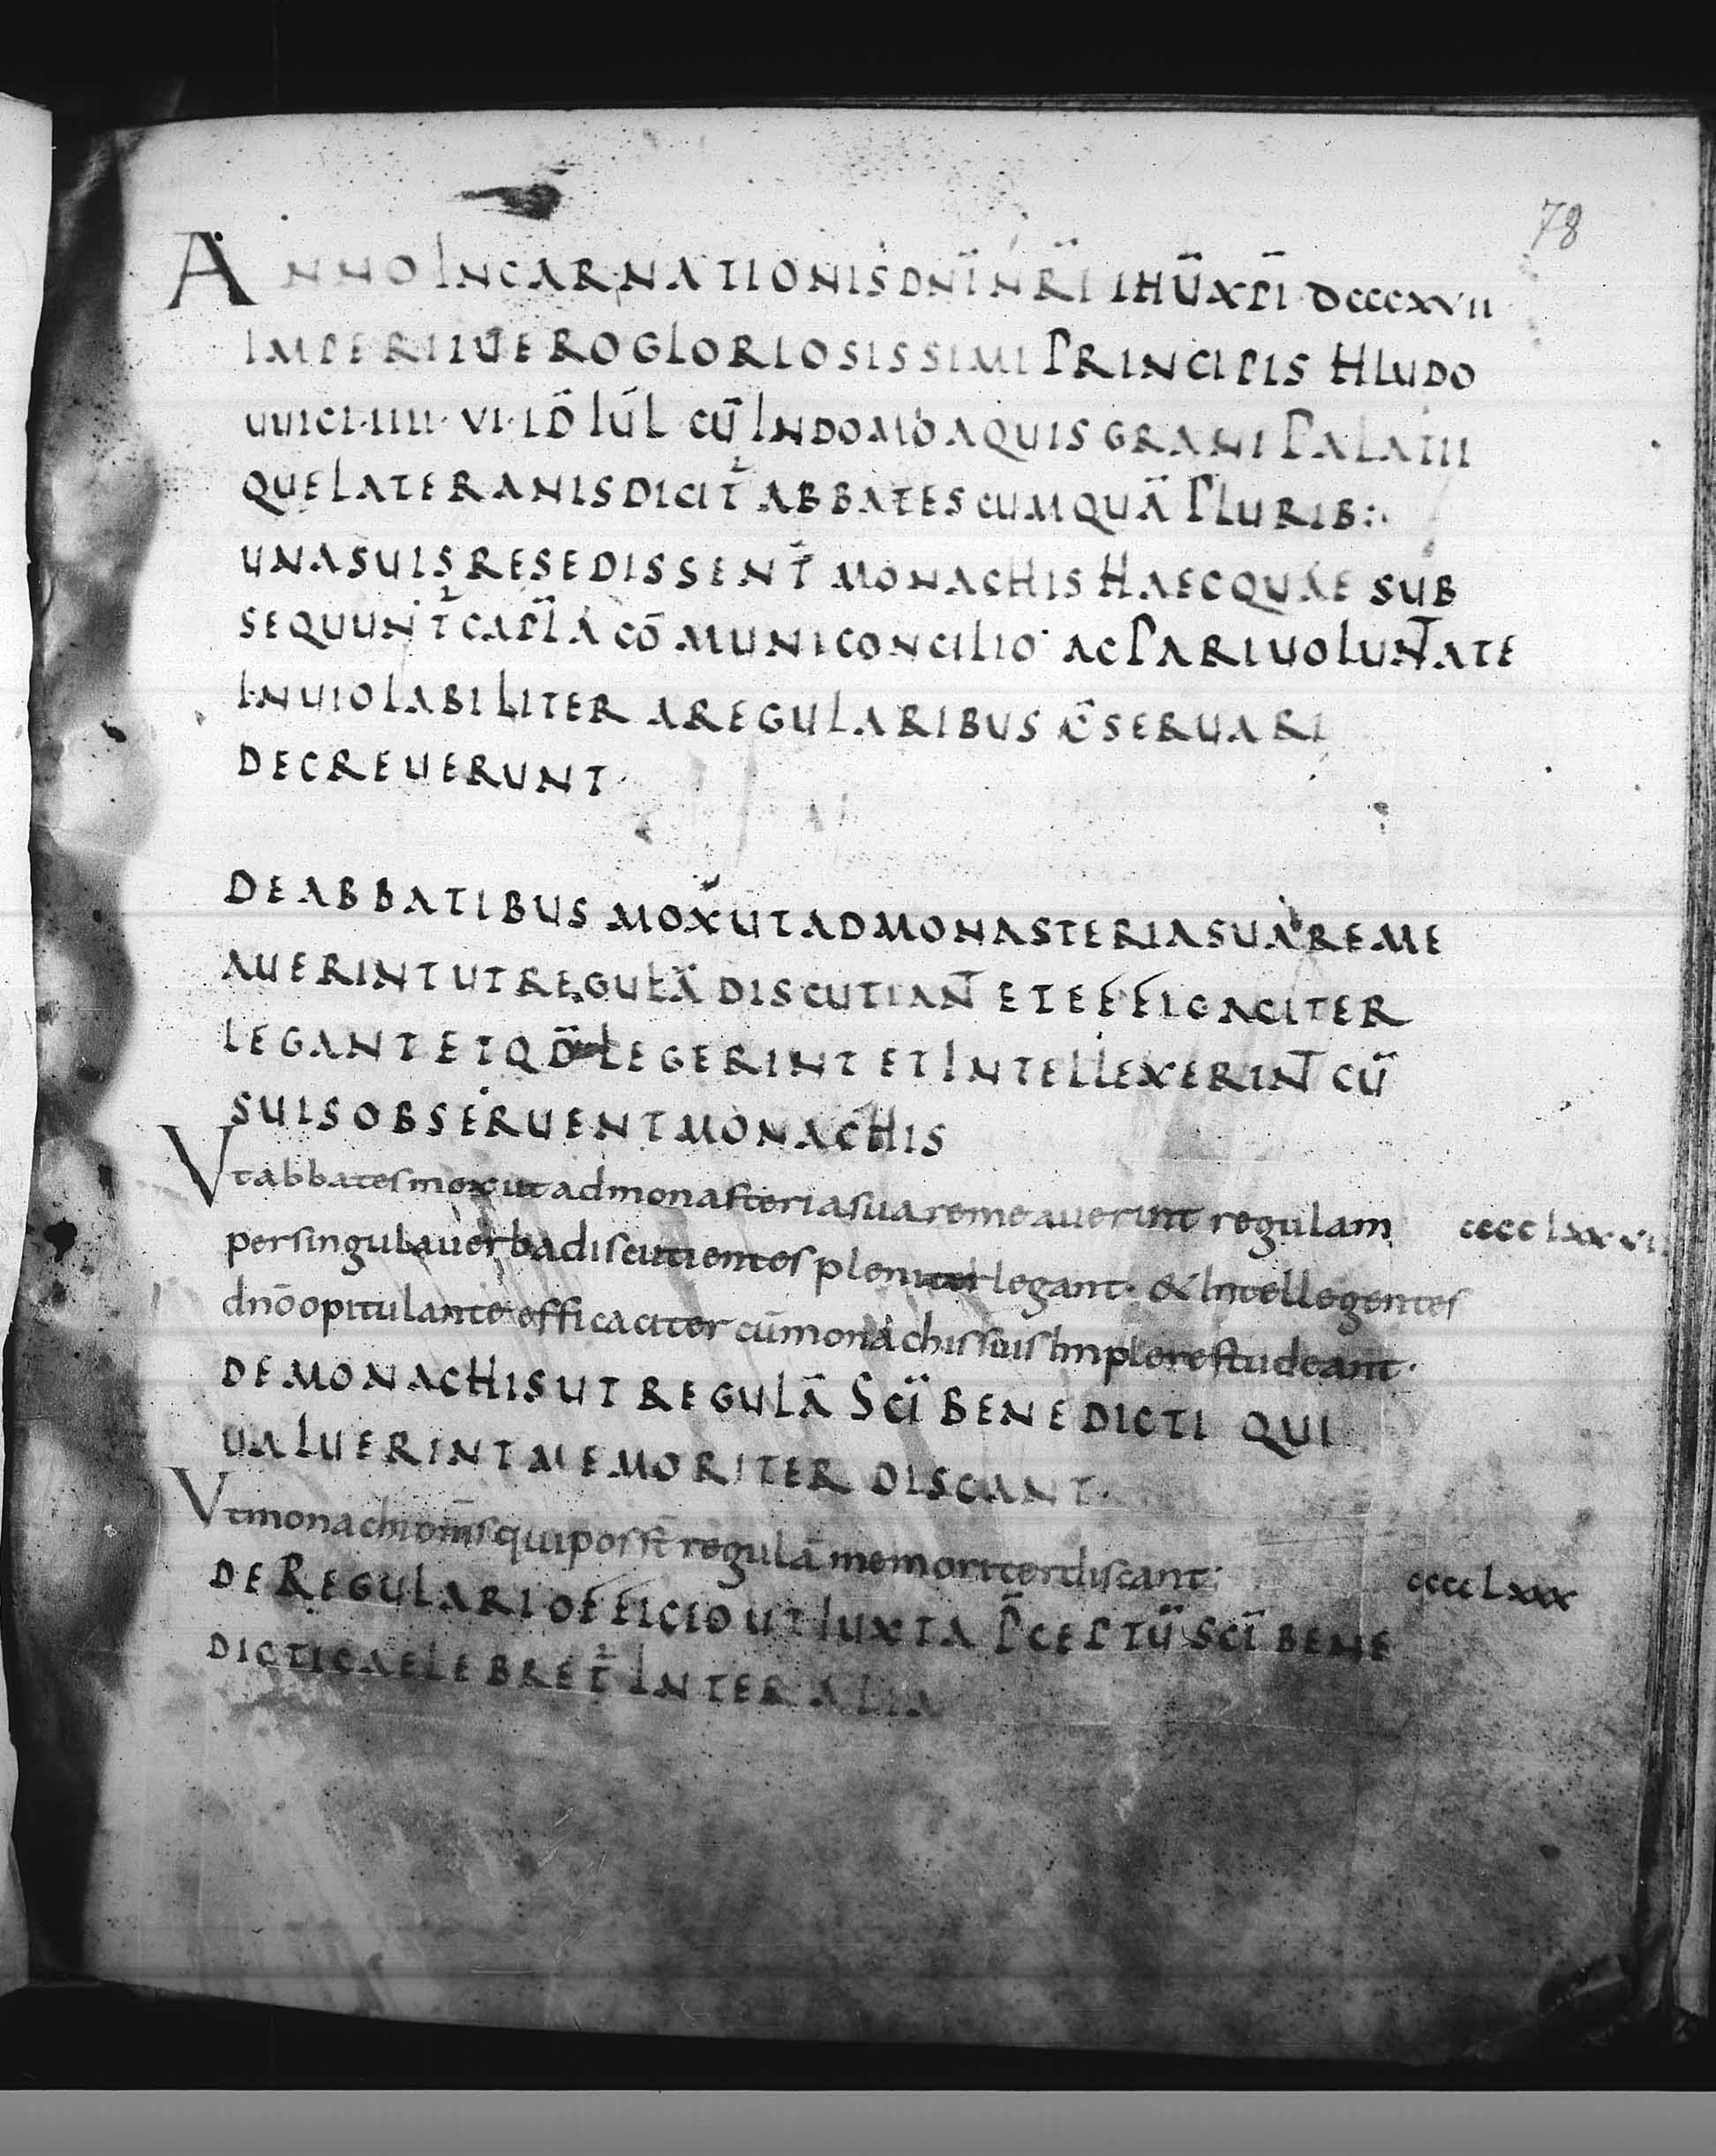 78
ANNO INCARNATIONIS DNĪ NR̄I IHŪ XPĪ DCCCXVII
IMPERII UERO GLORIOSISSIMI PRINCIPIS HLUDO
UUICI·IIII· VI· ID̄ IUL̄ CŪ IN DOMO AQUIS GRANI PALATII
QUE LATERANIS DICIT̄ ABBATES CUM QUĀ PLURIB:·
UNA SUIS RESEDISSENT̄ MONACHIS HAEC QUAE SUB
SEQUUNT̄ CAPL̄A CŌMUNI CONCILIO AC PARI UOLUNTATE
INUIOLABILITER A REGULARIBUS C̄SERUARI
DECREUERUNT·
DE ABBATIBUS MOX UT AD MONASTERIA SUA REME
AUERINT UT REGULĀ DISCUTIANT ET EFFICACITER
LEGANT ET QD̄ LEGERINT ET INTELLEXERINT CŪ
SUIS OBSERUENT MONACHIS
Vt abbates mox ut ad monasteria sua remeauerint regulam cccclxxvii
per singula uerba discutientes pleniter legant· & Intellegentes
dnō opitulante efficaciter cū monachis suis Implere studeant·
DE MONACHIS UT REGULĀ SCĪ BENEDICTI QUI
UALUERINT MEMORITER DISCANT·
Vt monachi om̄s qui poss̄t regulā memoriter discant; cccclxxx
DE REGULARI OFFICIO UT IUXTA P̄CEPTŪ SCĪ BENE
DICTI CAELEBRET̄ INTER ALIA